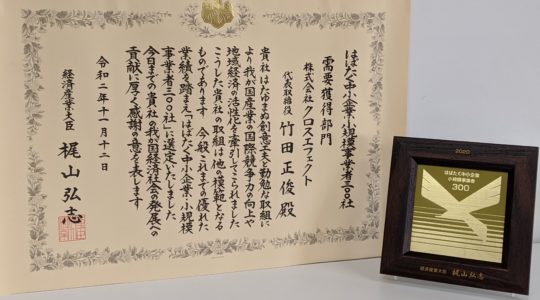 はばたく中小企業・小規模事業者三〇〇社
需要獲得部門
株式会社クロスエフェクト
代表取締役 竹田正俊 殿
貴社はたゆまぬ創意工夫と勤勉な取組に
より我が国産業の国際競争力の向上や
地域経済の活性化を牽引してこられました
こうした貴社の取組は他の模範となる
ものであります 今般これまでの優れた
業績を踏まえ「はばたく中小企業・小規模
事業者三〇〇社」に選定いたしました
今日までの貴社の我が国経済社会の発展への
貢献に厚く感謝の意を表します
令和二年十一月十二日
経済産業大臣 梶山弘志
2020
はばたく中小企業
小規模事業者
300
経済産業大臣 梶山弘志